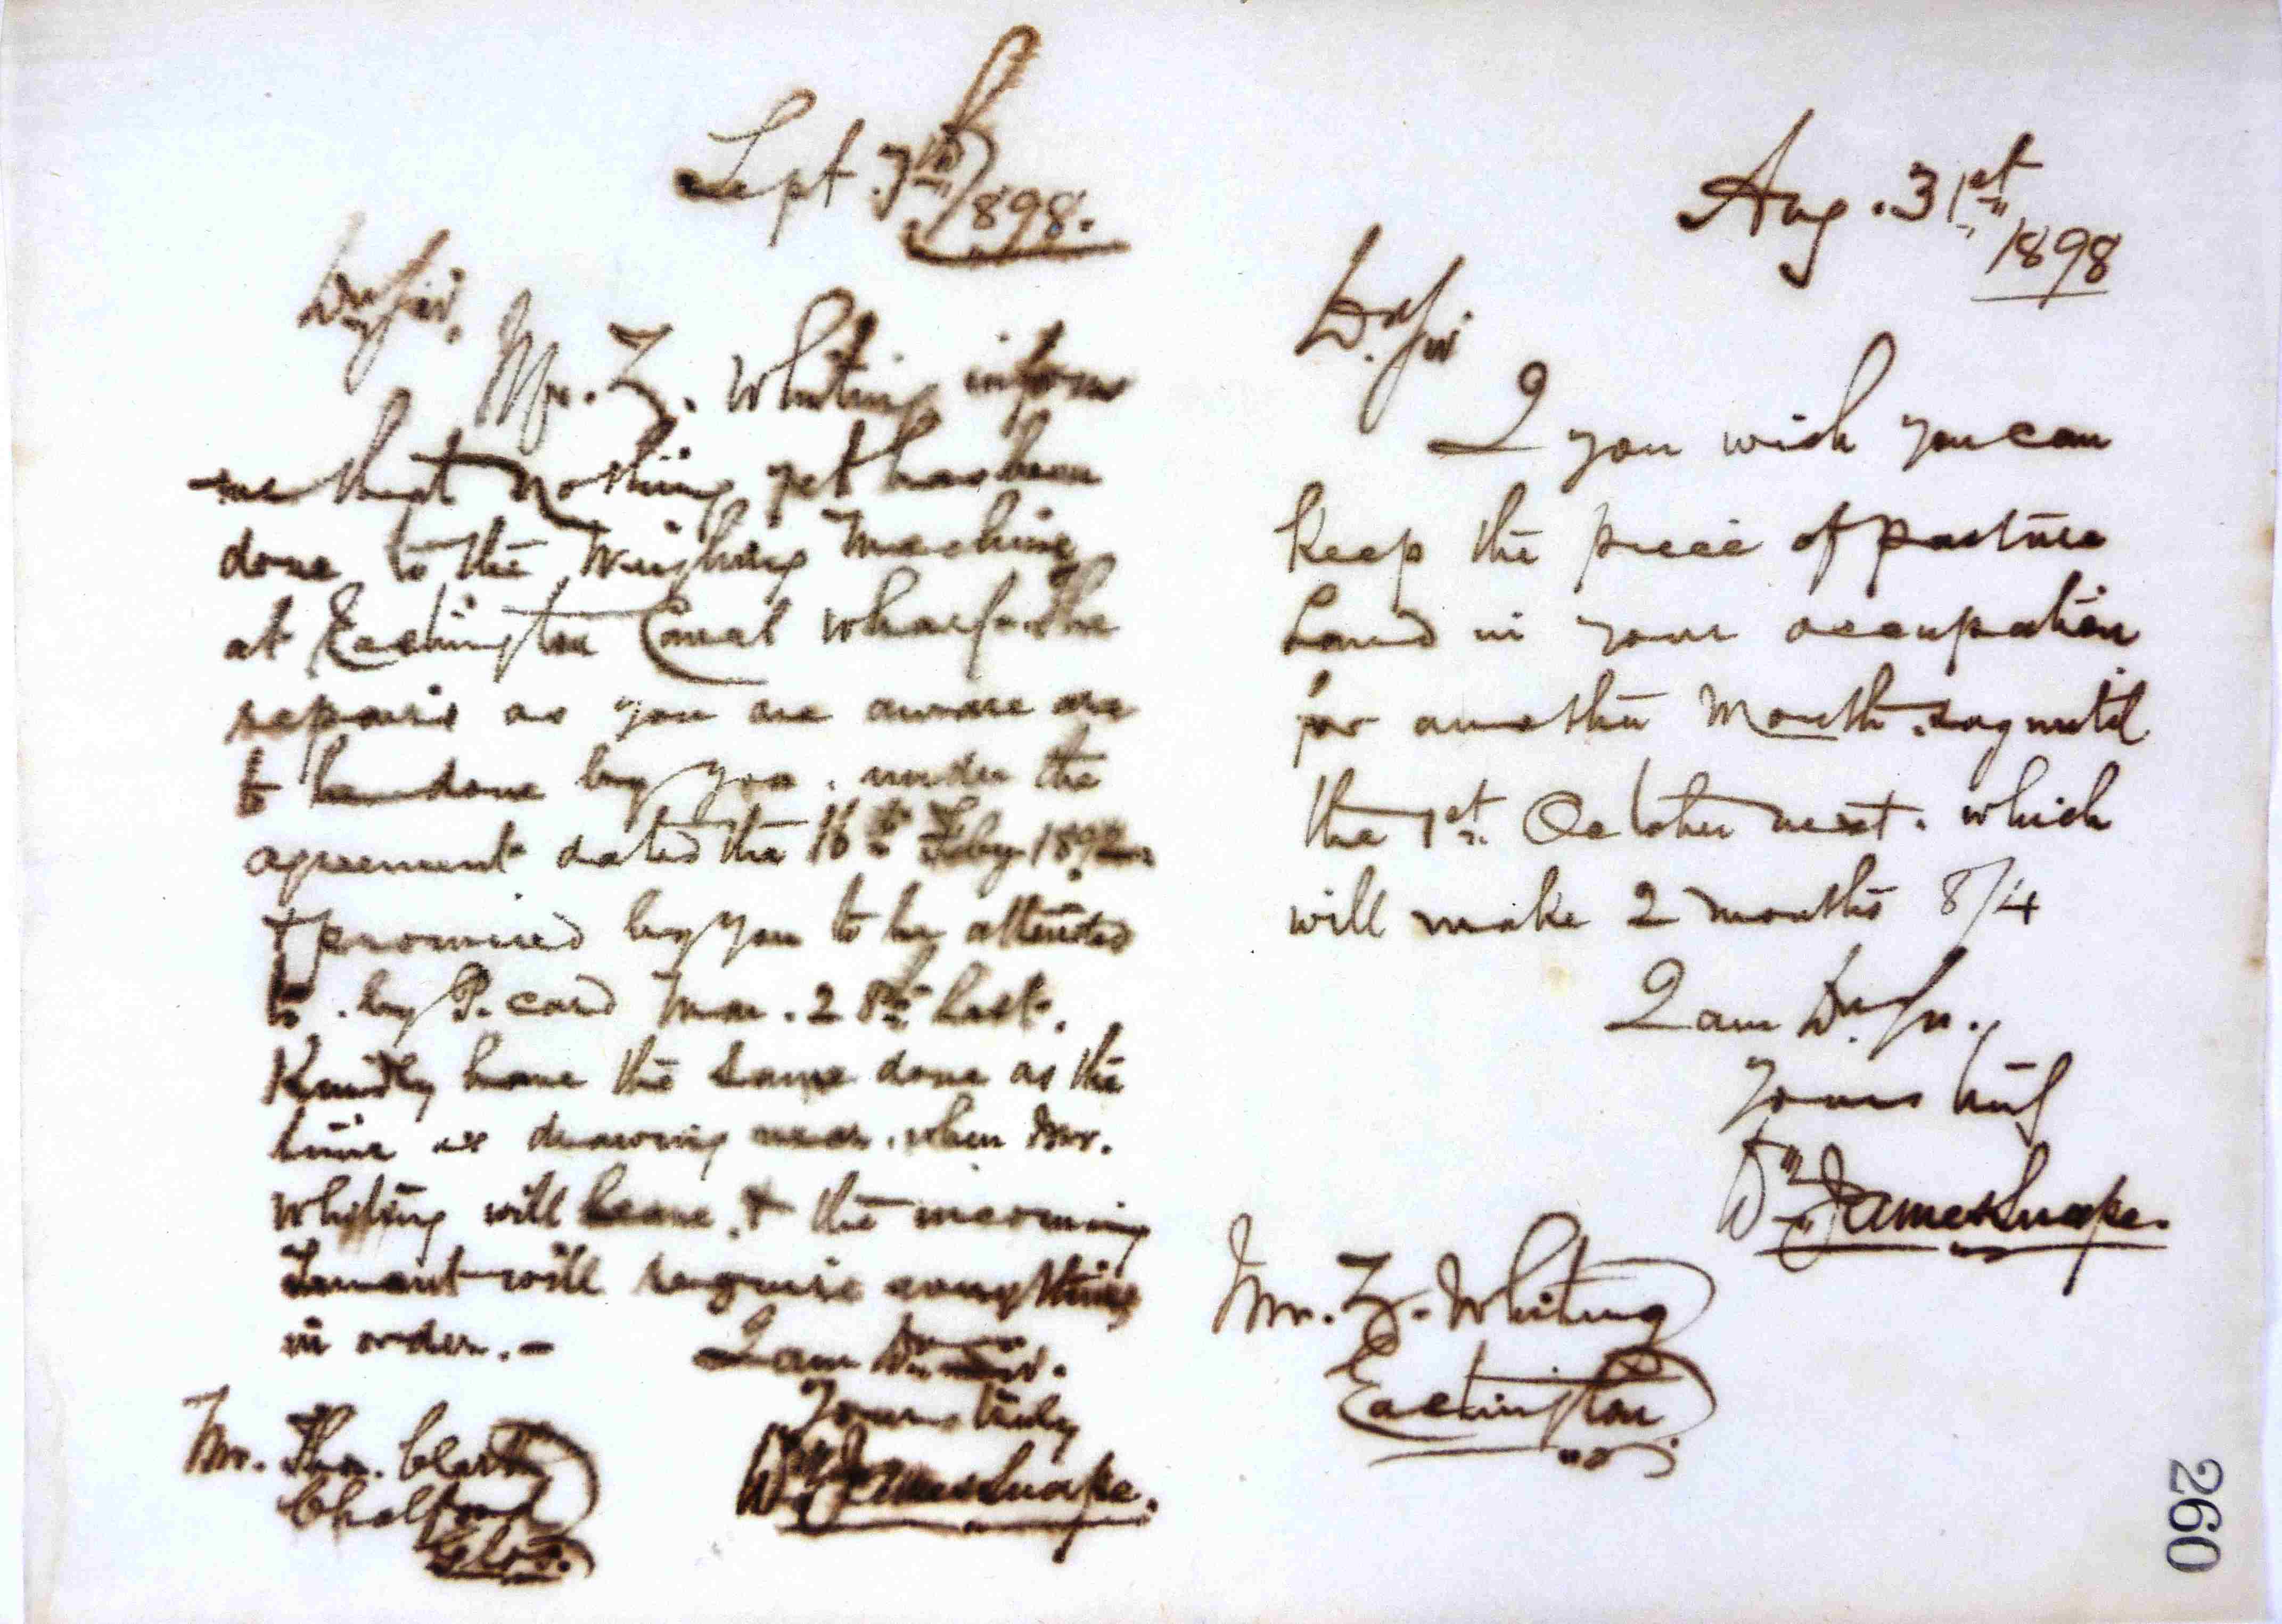 Sept. 7th/1898.
Dr Sir,
Mr. Z. Whiting inform
me that nothing yet has been
done to the Weighing Machine
at Eastington Canal Wharf. The
repairs as you are aware are
to be done by you. under the
agreement dated the 16th Feby 1892
+ promised by you to be attended
to. by P. card Mar. 28th last.
Kindly have the same done as the
time is drawing near. when Mr.
Whiting will leave. + the incoming
Tenant will require everything
in order. -
I am Dr. Sir.
Yours truly
Wm James Snape.
Mr. Thos. Clark
Chalford
Glos.
Aug. 31st
1898
Dr. Sir
I you wish you can
keep the piece of pasture
Land in your occupation
for another Month. say until
the 1st. October next. which
will make 2 months 8/4
I am Dr. Sir.,
Yours truly
Wm James Snape.
Mr. Z. Whiting
Eastington
260